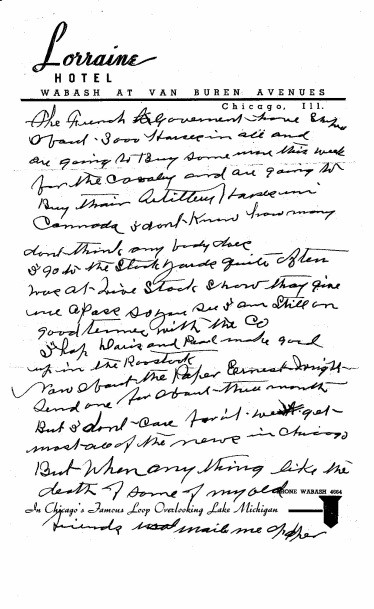 Lorraine
HOTEL
WABASH AT VAN BUREN AVENUES
Chicago, Ill.
The French Goverment have
about 3000 Horses in all and
are going to Buy some more this week
for the Cavaly and are going to
Buy thair Artillery Horses in
Cannada I dont Know how many
dont think any body does
I go to the Stock Yards quite often
was at Live Stock Show they give
me a pass so you see I am Still on
good termes with the Co
I hop Davis and Pearl make good
up in the Roostook
Now about the Paper Ernest
Send one for about three month
But I dont Care for it we get
most all of the news in Chicago
But when any thing like the
death of some of my old
PHONE WABASH 4664
In Chicago's Famous Loop Overlooking Lake Michigan
friends mail me paper